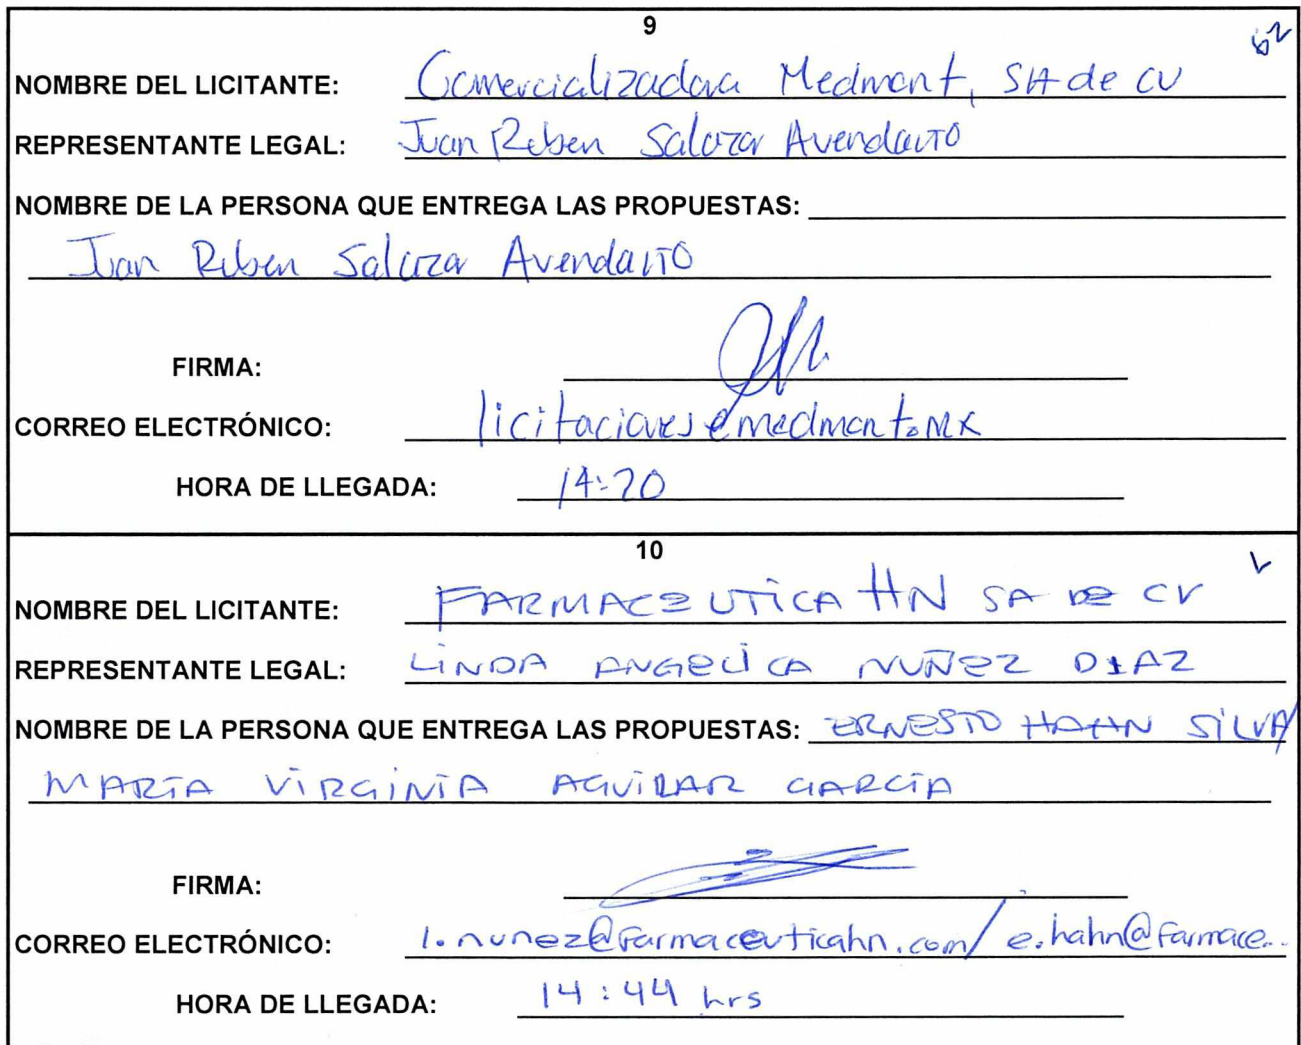 9
NOMBRE DEL LICITANTE: Comercializadora Medmont, SA de CV
REPRESENTANTE LEGAL: Juan Ruben Salazar Avendaño
NOMBRE DE LA PERSONA QUE ENTREGA LAS PROPUESTAS:
Juan Ruben Salazar Avendaño
FIRMA:
CORREO ELECTRÓNICO: licitaciones@medmont.mx
HORA DE LLEGADA: 14:20
10
NOMBRE DEL LICITANTE: FARMACEUTICA HN SA DE CV
REPRESENTANTE LEGAL: LINDA ANGELICA NUÑEZ DIAZ
NOMBRE DE LA PERSONA QUE ENTREGA LAS PROPUESTAS: ERNESTO HAHN SILVA/
MARÍA VIRGINIA AGUILAR GARCÍA
FIRMA:
CORREO ELECTRÓNICO: l.nunez@farmaceuticahn.com/ e.hahn@farmace...
HORA DE LLEGADA: 14:44 hrs